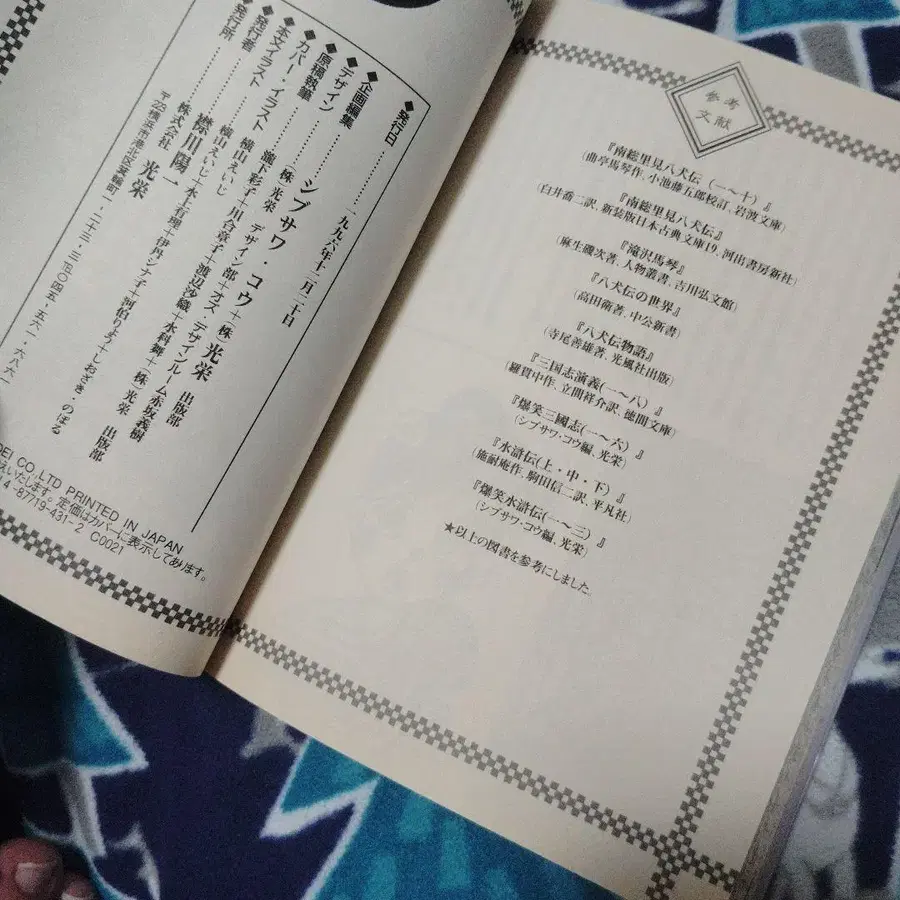 参考
文献
『南総里見八犬伝(一〜十)』
(曲亭馬琴作、小池藤五郎校訂、岩波文庫)
『南総里見八犬伝』
(白井喬二訳、新装版日本古典文庫19、河出書房新社)
『滝沢馬琴』
(麻生磯次著、人物叢書、吉川弘文館)
『八犬伝の世界』
(高田衛著、中公新書)
『八犬伝物語』
(寺尾善雄著、光風社出版)
『三国志演義(一〜八)』
(羅貫中作、立間祥介訳、徳間文庫)
『爆笑三國志(一〜六)』
(シブサワ・コウ編、光栄)
『水滸伝(上・中・下)』
(施耐庵作、駒田信二訳、平凡社)
『爆笑水滸伝(一〜三)』
(シブサワ・コウ編、光栄)
★以上の図書を参考にしました。
◆発行日……一九九六年十二月二十日
◆企画編集……シブサワ・コウ+(株)光栄 出版部
◆デザイン……(株)光栄 デザイン部+オズ デザインルーム赤坂義樹
◆原稿執筆……瀧下彩子+川合章子+渡辺沙織+水科舞+(株)光栄 出版部
◆カバー・イラスト……横山えいじ
◆本文イラスト……横山えいじ+水上有理+伊丹シナ子+河伯りょう+しおざき・のぼる
◆発行者……襟川陽一
◆発行所……株式会社 光栄
〒223横浜市港北区箕輪町一-二十三-三 ☎〇四五-五六一-六八六一
OEI CO.,LTD PRINTED IN JAPAN
えいたします。定価はカバーに表示してあります。
4-87719-431-2 C0021